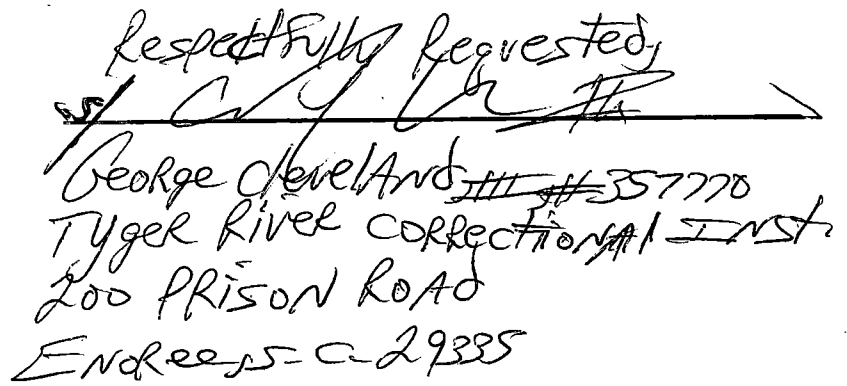 Respectfully Requested,
s/
George Cleveland III #357770
Tyger River Correctional Inst.
200 Prison Road
Enoree, S.C. 29335